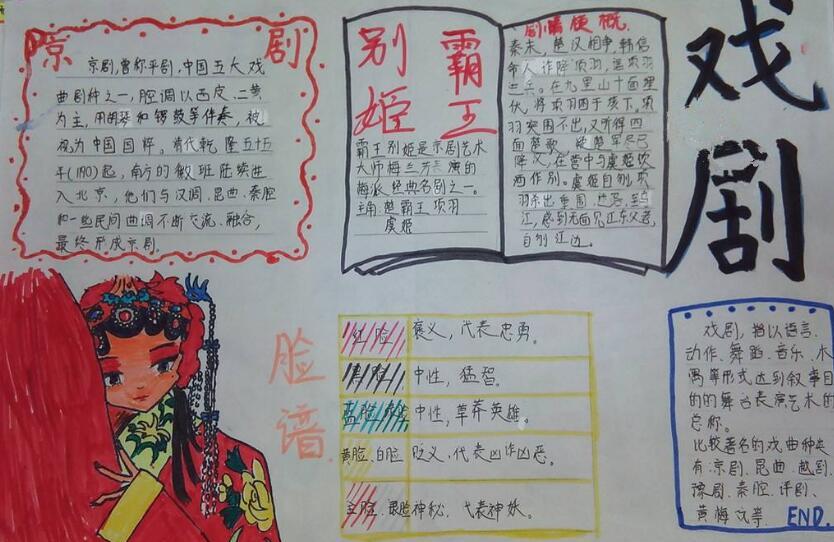 京剧
京剧,曾称平剧,中国五大戏
曲剧种之一,腔调以西皮、二黄
为主,用胡琴和锣鼓等伴奏,被
视为中国国粹。清代乾隆五十五
年(1790)起,南方的徽班陆续进
入北京,他们与汉调、昆曲、秦腔
和一些民间曲调不断交流、融合,
最终形成京剧。
霸王
别姬
霸王别姬是京剧艺术
大师梅兰芳表演的
梅派经典名剧之一。
主角:楚霸王项羽
虞姬
剧情梗概
秦末,楚汉相争,韩信
命人诈降项羽,诓项羽
出兵。在九里山十面埋
伏,将项羽困于垓下。项
羽突围不出,又听得四
面楚歌,疑楚军尽已
降汉,在营中与虞姬饮
酒作别。虞姬自刎,项
羽杀出重围,迷路,至乌
江,感到无面见江东父老,
自刎江边。
戏剧
脸谱
红脸 褒义,代表忠勇。
黑脸 中性,猛智。
蓝脸 中性,草莽英雄。
黄脸、白脸 贬义,代表凶诈凶恶。
金脸、银脸 神秘,代表神妖。
戏剧,指以语言、
动作、舞蹈、音乐、木
偶等形式达到叙事目
的的舞台表演艺术的
总称。
比较著名的戏曲种类
有:京剧、昆曲、越剧、
豫剧、秦腔、评剧、
黄梅戏等。 END.